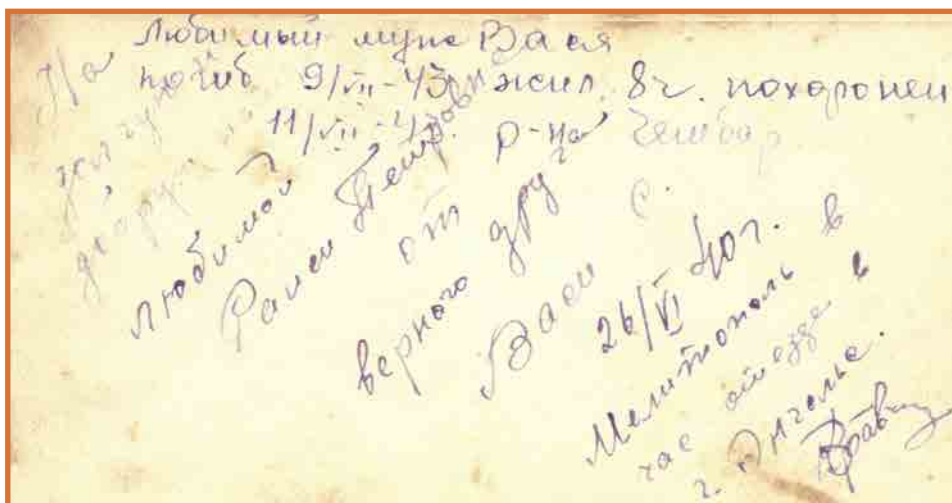 Любимый муж Вася
погиб 9/VII-43 жил 8ч. похоронен
11/VII-43. р-на Чембар
На
долгую
дружбу
любимой
Раисы Петровны
от
верного друга
Васи С.
26/VI 40г.
Мелитополь в
час отъезда в
г. Энгельс.